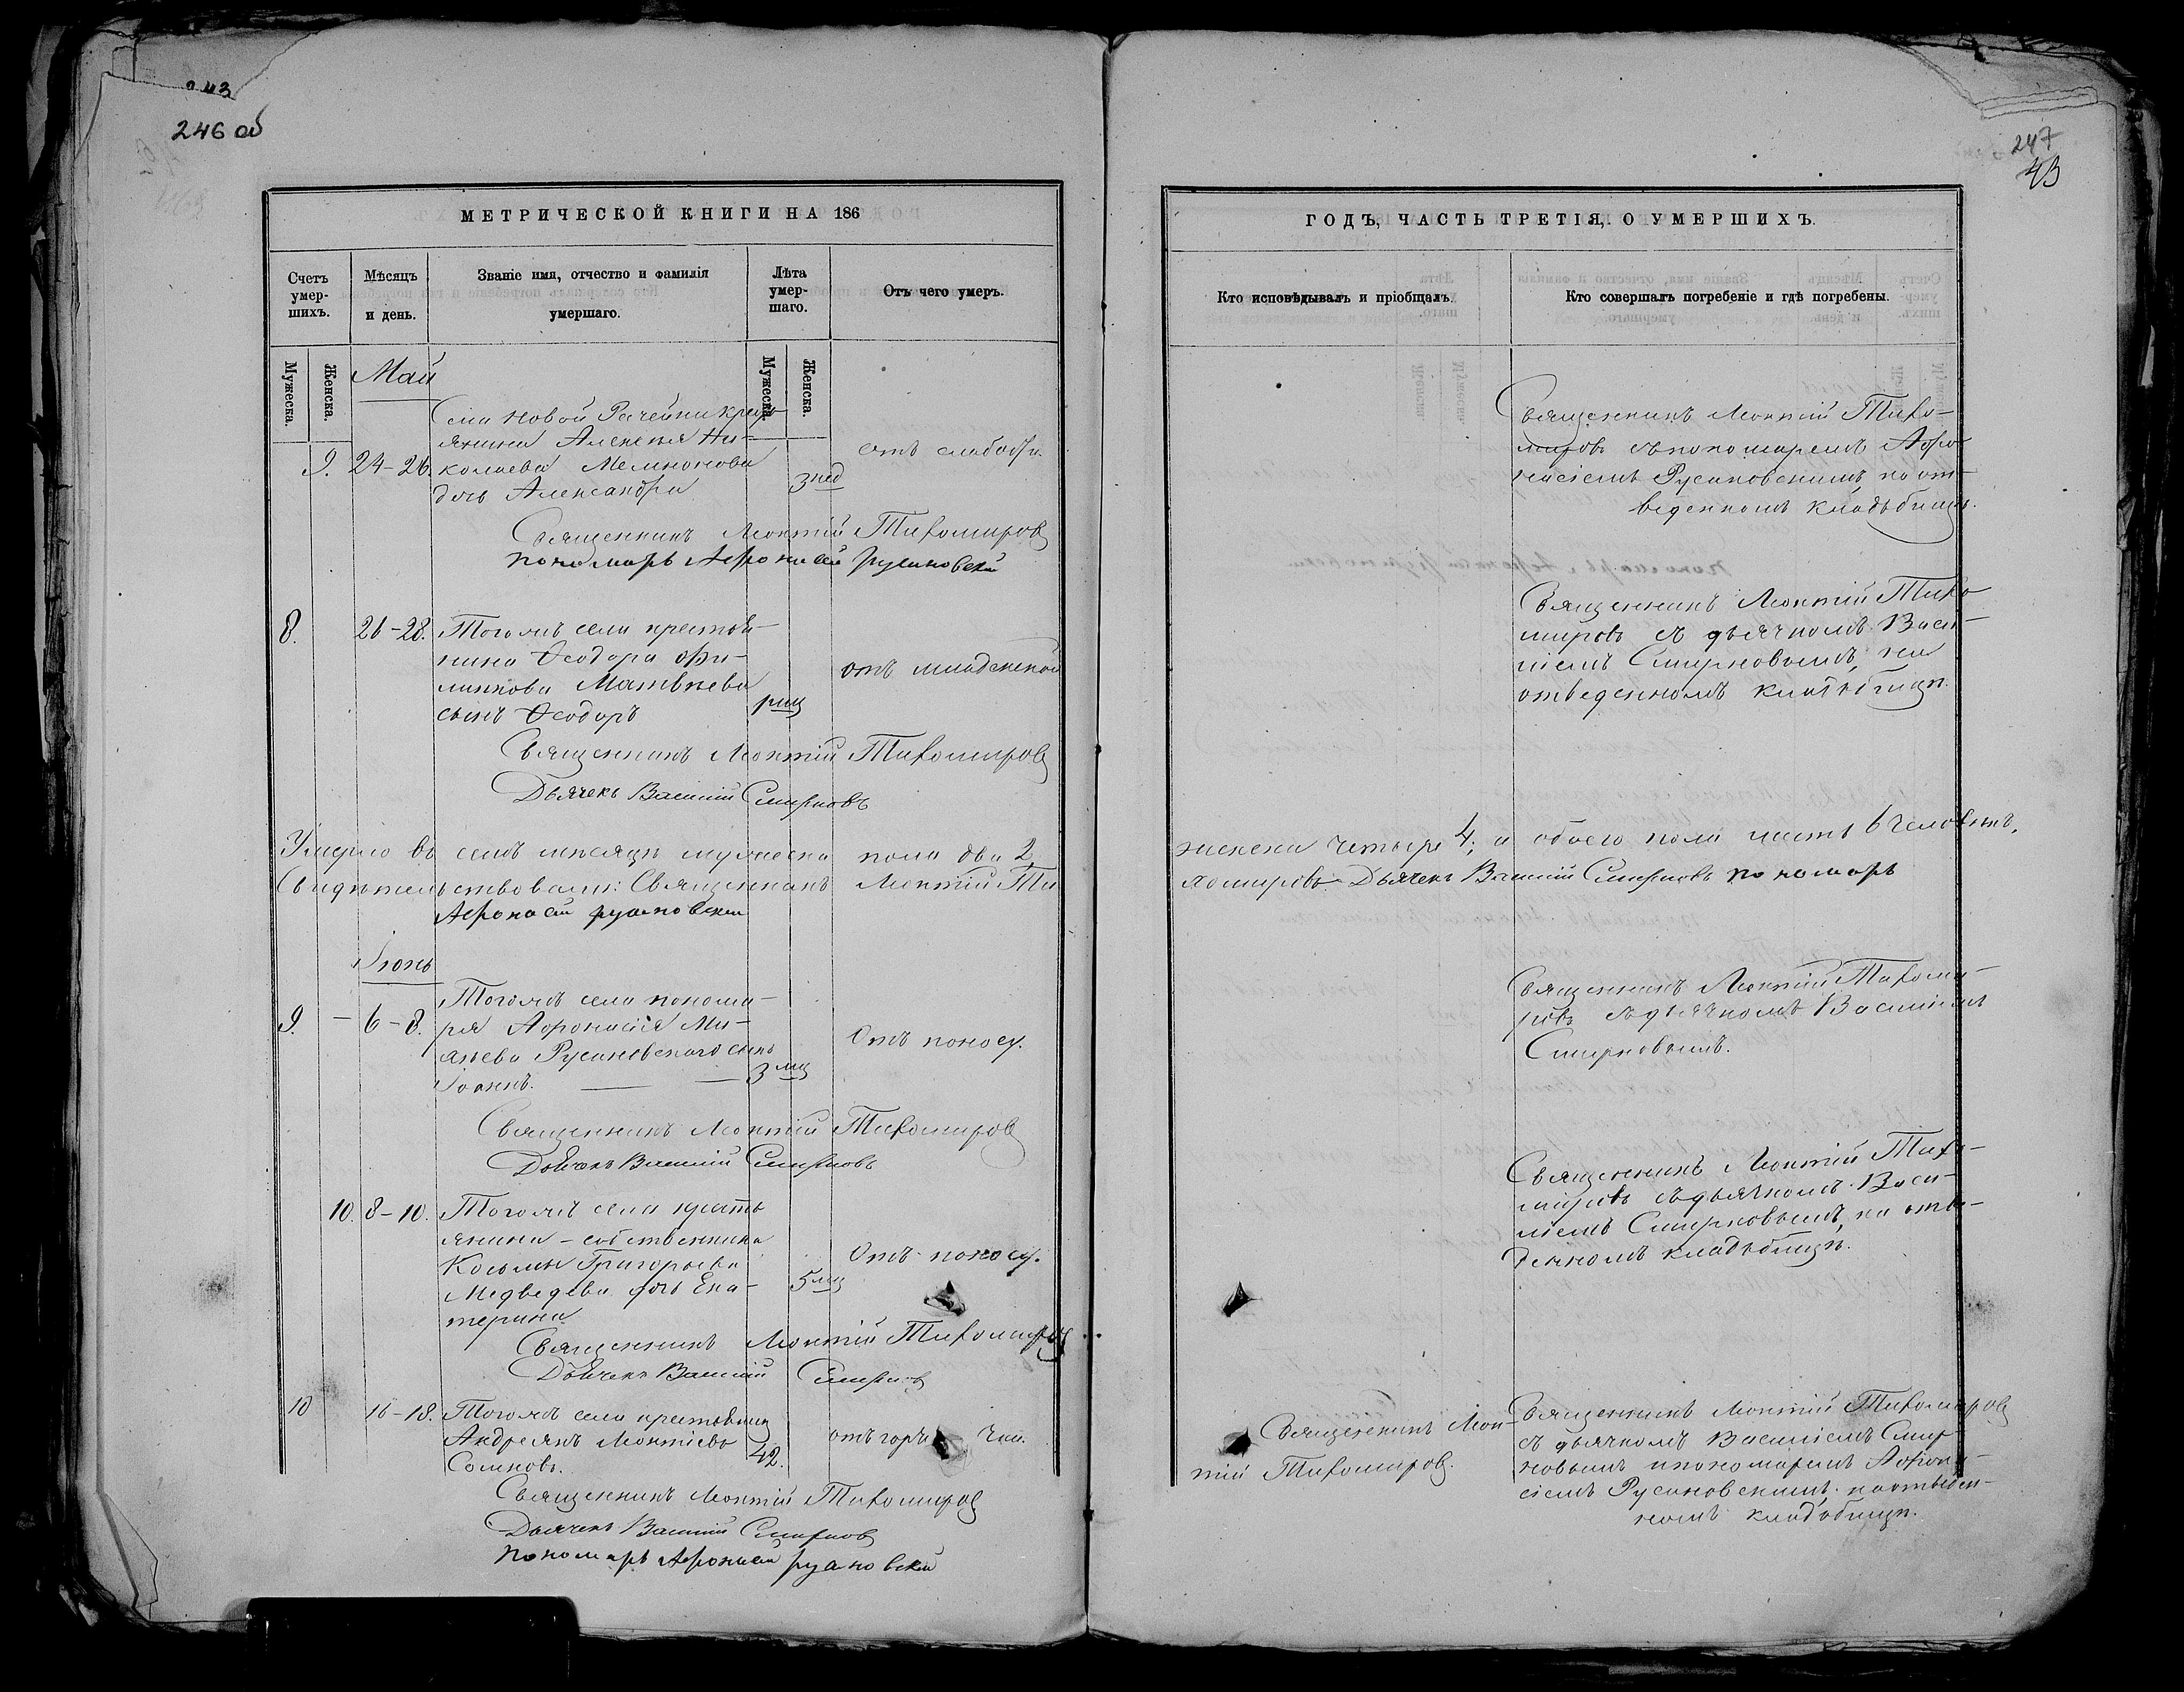 243
246 об
МЕТРИЧЕСКОЙ КНИГИ НА 186
Счетъ умер-шихъ.
Мѣсяцъ и день.
Званіе имя, отчество и фамилія умершаго.
Лѣта умер-шаго.
Отъ чего умеръ.
Мужеска.
Женска.
Мужеска.
Женска.
Май
Села Новой Рачейки кресть
янина Алексѣя Ни-
9. 24-26. колаева Мелионова
дочь Александра 3 нед
отъ слабости.
Священникъ Леонтій Тихомировъ
пономарь Афонасій Русановскій
8. 26-28. Тогожъ села крестья-
нина Ѳеодора Фи-
липпова Матвѣева
сынъ Ѳеодоръ
отъ младенской
Священникъ Леонтій Тихомировъ
Дьячекъ Василій Смирновъ
Умерло въ семъ мѣсяцѣ мужеска пола два 2,
Свидѣтельствовали: Священникъ Леонтій Ти
Афонасій Русановскій
Іюнь
Тогожъ села понома-
9. - 6-8. ря Афонасія Ми-
хѣева Русановскаго сынъ
Іоаннъ. 3 мц
Отъ поносу.
Священникъ Леонтій Тихомировъ
Дьячекъ Василій Смирновъ
10. 8-10. Тогожъ села кресть
янина-собственника
Косьмы Григорьева
Медведева дочь Ека-
терина
5 мц
Отъ поносу.
Священникъ Леонтій Тихомировъ
Дьячекъ Василій Смирновъ
10 16-18. Тогожъ села крестьянинъ
Андреянъ Леонтіевъ
Сомновъ. 42.
отъ горя чки.
Священникъ Леонтій Тихомировъ
Дьячекъ Василій Смирновъ
Пономарь Афонасій Русановскій
247
43
ГОДЪ, ЧАСТЬ ТРЕТІЯ, О УМЕРШИХЪ.
Кто исповѣдывалъ и пріобщалъ.
Кто совершалъ погребеніе и гдѣ погребены.
Священникъ Леонтій Тихо-
мировъ съ пономаремъ Афо-
насіемъ Русановскимъ, на от-
веденномъ кладьбищѣ.
Священникъ Леонтій Тихо
мировъ съ дьячкомъ Васи-
ліемъ Смирновымъ, на
отведенномъ кладьбищѣ.
женска четыре 4; и обоего пола шесть 6 человѣкъ.
хомировъ Дьячекъ Василій Смирновъ пономарь
Священникъ Леонтій Тихоми-
ровъ съ дьячкомъ Василіемъ
Смирновымъ.
Священникъ Леонтій Тихо-
мировъ съ дьячкомъ Васи-
ліемъ Смирновымъ, на отве-
денномъ кладьбищѣ.
Священникъ Леон-
тій Тихомировъ.
Священникъ Леонтій Тихомировъ
съ дьячкомъ Василіемъ Смир
новымъ и пономаремъ Афона-
сіемъ Русановскимъ, на отведен-
номъ кладьбищѣ.